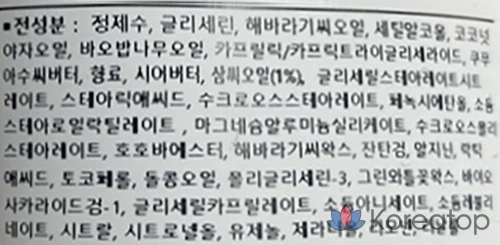 ▪전성분 : 정제수, 글리세린, 해바라기씨오일, 세틸알코올, 코코넛
야자오일, 바오밥나무오일, 카프릴릭/카프릭트라이글리세라이드, 쿠푸
아수씨버터, 향료, 시어버터, 삼씨오일(1%), 글리세릴스테아레이트시트
레이트, 스테아릭애씨드, 수크로오스스테아레이트, 페녹시에탄올, 소듐
스테아로일락틸레이트, 마그네슘알루미늄실리케이트, 수크로오스폴리
스테아레이트, 호호바에스터, 해바라기씨왁스, 잔탄검, 알지닌, 락틱
애씨드, 토코페롤, 돌콩오일, 폴리글리세린-3, 그린와틀꽃왁스, 바이오
사카라이드검-1, 글리세릴카프릴레이트, 소듐아니세이트, 소듐레불리
네이트, 시트랄, 시트로넬올, 유제놀, 제라니올,
Koreatop